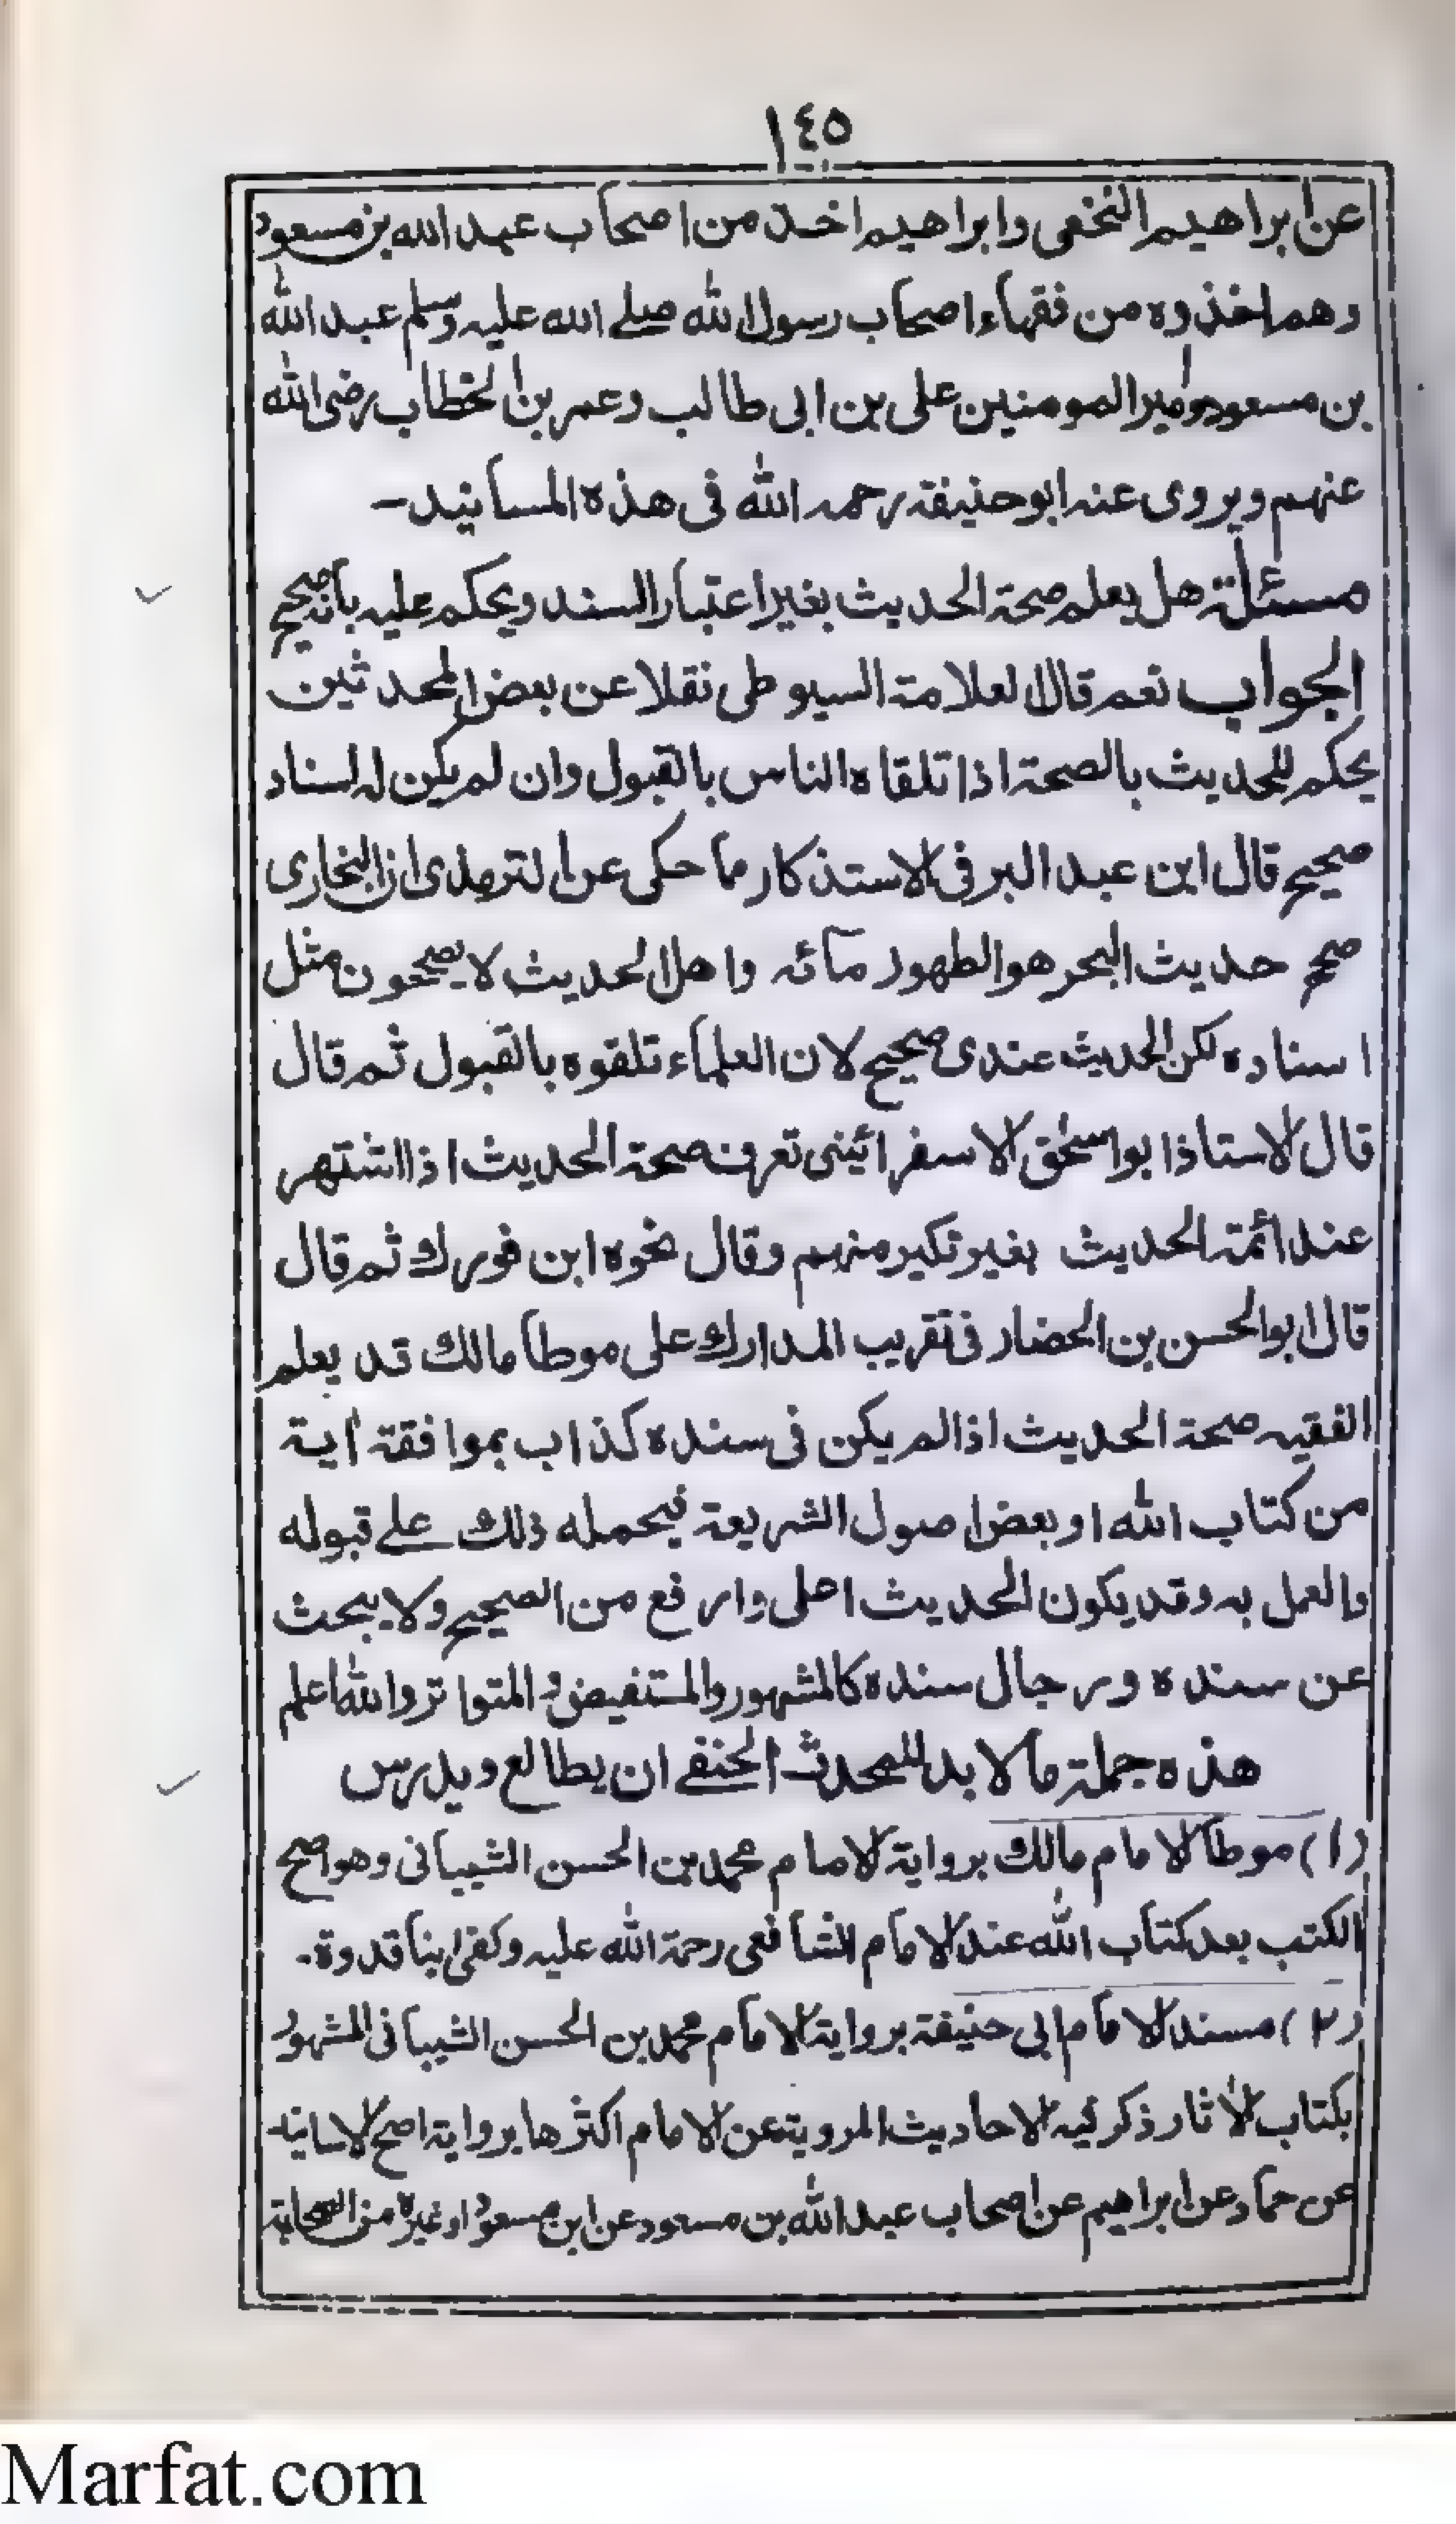 ١٤٥
عن ابراهيم النخعى وابراهيم اخذ من اصحاب عبد الله بن مسعود
وهم اخذوه من فقهاء اصحاب رسول الله صلے الله عليه وسلم عبد الله
بن مسعود وامير المومنين على بن ابى طالب وعمر بن الخطاب رضى الله
عنهم ويروى عنه ابو حنيفة رحمه الله فى هذه المسانيد-
مسئلة هل يعلم صحة الحديث بغير اعتبار السند ويحكم عليه بانه صحيح
الجواب نعم قال العلامة السيوطى نقلا عن بعض المحدثين
يحكم للحديث بالصحة اذا تلقاه الناس بالقبول وان لم يكن له اسناد
صحيح قال ابن عبد البر فى الاستذكار ما حكى عن الترمذى ان البخارى
صحح حديث البحر هو الطهور مائه واهل الحديث لا يصححون مثل
اسناده لكن الحديث عندى صحيح لان العلماء تلقوه بالقبول ثم قال
قال الاستاذ ابو اسحٰق الاسفرائينى تعرف صحة الحديث اذا اشتهر
عند ائمة الحديث بغير نكير منهم وقال نحوه ابن فورك ثم قال
قال ابو الحسن بن الحضار فى تقريب المدارك على موطا مالك قد يعلم
الفقيه صحة الحديث اذا لم يكن فى سنده كذاب بموافقة اٰية
من كتاب الله او بعض اصول الشريعة فيحمله ذلك علے قبوله
والعمل به وقد يكون الحديث اعلى وارفع من الصحيح ولا يبحث
عن سنده ورجال سنده كالمشهور والمستفيض و المتواتر والله اعلم
هذه جملة ما لا بد للمحدث الحنفے ان يطالع ويدرس
(١) موطا الامام مالك برواية الامام محمد بن الحسن الشيبانى وهو اصح
الكتب بعد كتاب الله عند الامام الشافعى رحمة الله عليه وكفى بنا قدوة-
(٢) مسند الامام ابى حنيفة برواية الامام محمد بن الحسن الشيبانى المشهور
بكتاب الاٰثار ذكر فيه الاحاديث المروية عن الامام اكثرها برواية اصح الاسانيد
عن حماد عن ابراهيم عن اصحاب عبد الله بن مسعود عن ابن مسعود او غيره من الصحابة
Marfat.com